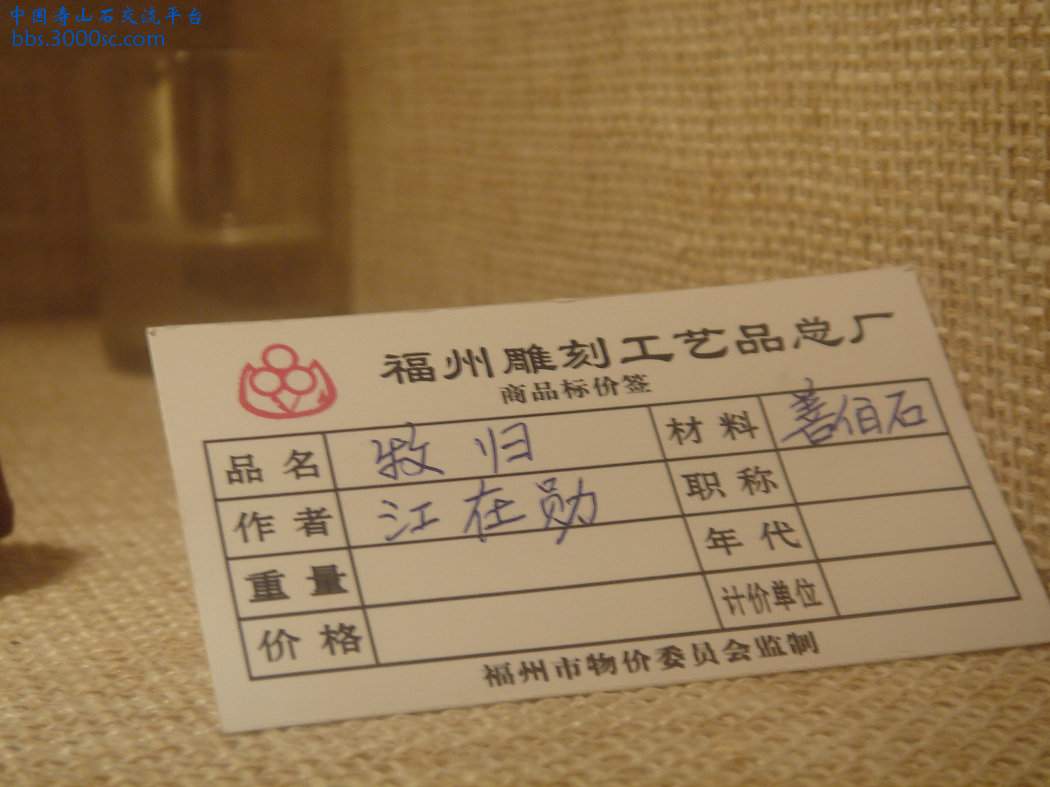 中国寿山石交流平台
bbs.3000sc.com
福州雕刻工艺品总厂
商品标价签
品名 牧归 材料 善伯石
作者 江在勋 职称
重量 年代
价格 计价单位
福州市物价委员会监制